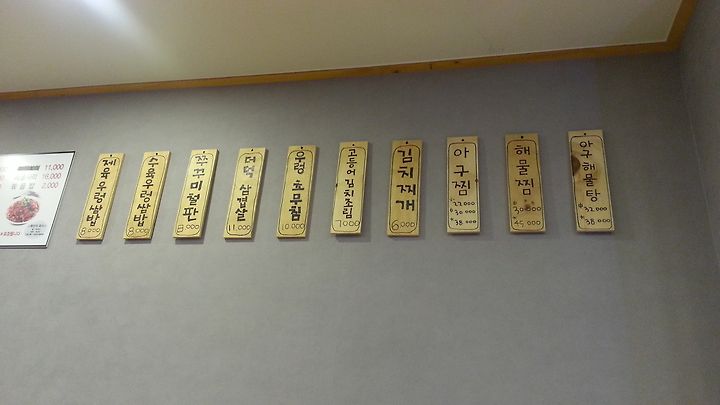 11,000
18,000
볶음밥 2,000
제육우렁쌈밥
8.000
수육우렁쌈밥
8.000
쭈꾸미철판
더덕삼겹살
11.000
우렁초무침
10.000
고등어김치조림
7000
김치찌개
6.000
아구찜
*22.000
*30.000
*38.000
해물찜
*30.000
45.000
아구해물탕
*32.000
*38.000